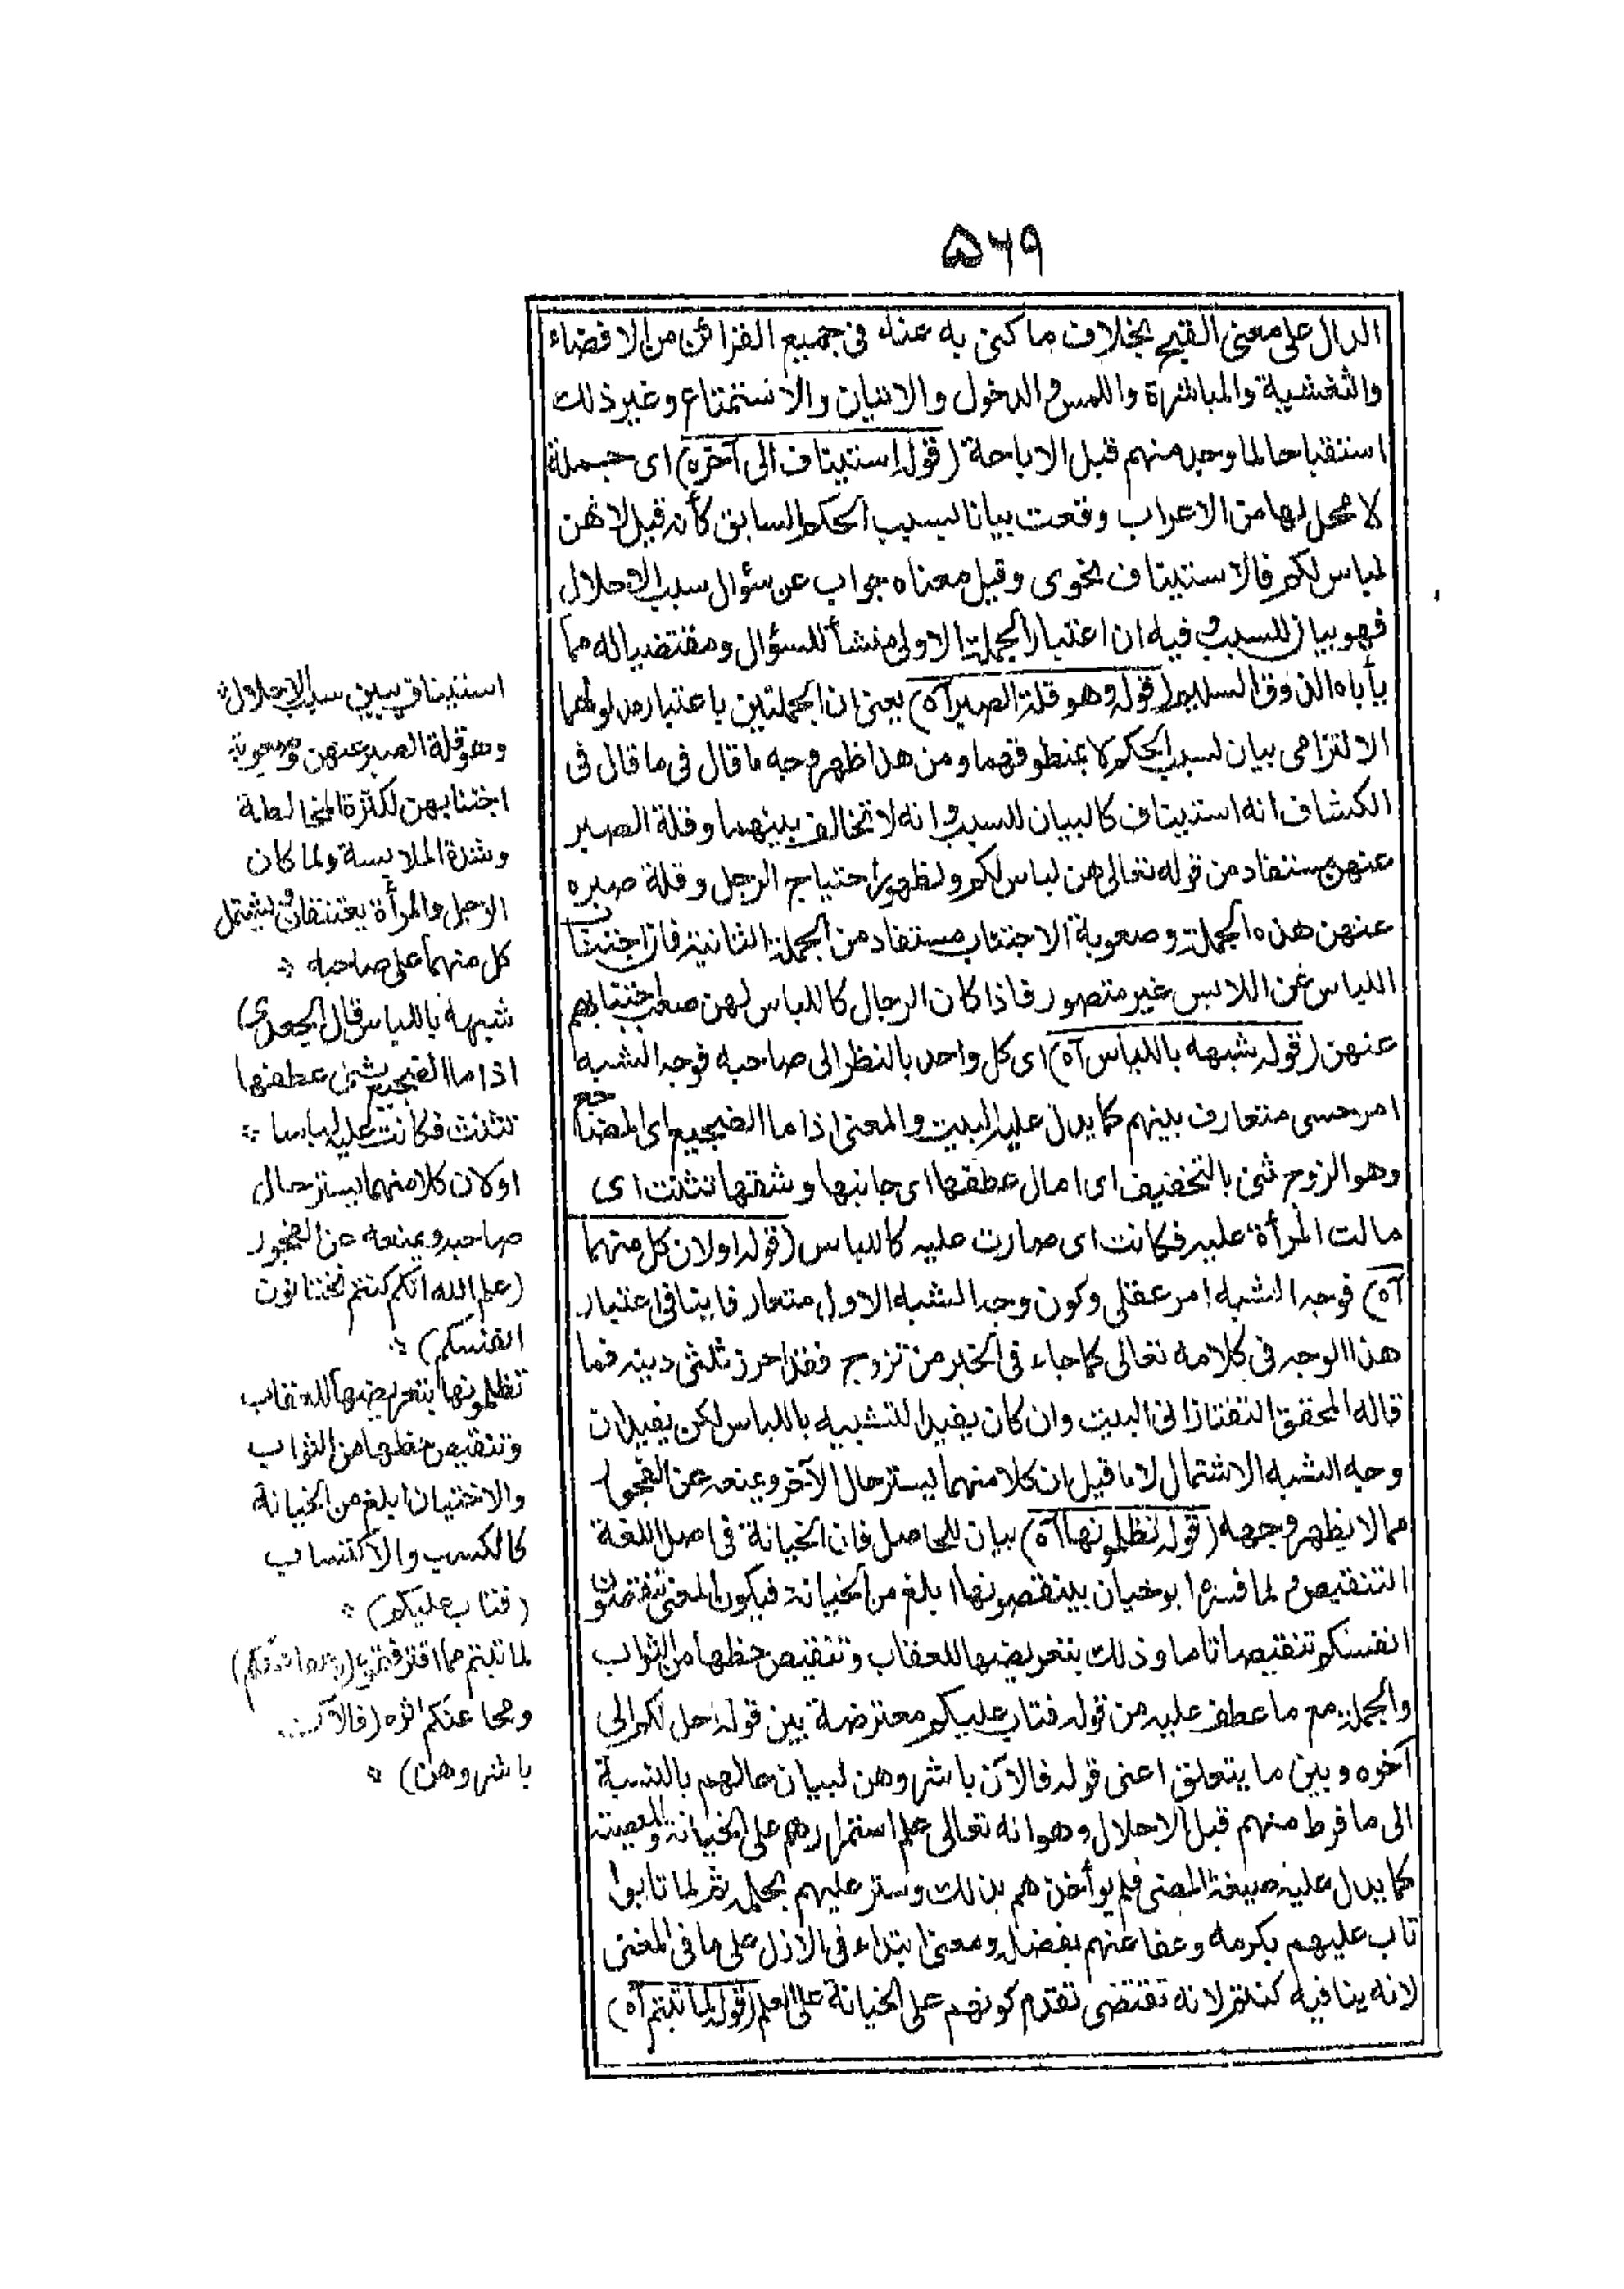 ۵۶۹
الدال على معنى القبح بخلاف ما كنى به عنه فى جميع القرائن من الافضاء
والتغشية والمباشرة واللمس والدخول والاتيان والاستمتاع وغير ذلك
استقباحا لما وجد منهم قبل الاباحة (قوله استيناف الى آخره) اى جملة
لا محل لها من الاعراب وقعت بيانا لسبب الحكم السابق كأنه قيل لانهن
لباس لكم فالاستيناف نحوى وقيل معناه جواب عن سؤال سبب الاحلال
فهو بيان للسبب وفيه ان اعتبار الجملة الاولى منشأ للسؤال ومقتضيا له مما
يأباه الذوق السليم (قوله وهو قلة الصبر آه) يعنى ان الجملتين باعتبار مدلولهما
الالتزامى بيان لسبب الحكم لا بمنطوقهما ومن هذا ظهر وجه ما قال فى ما قال فى
الكشاف انه استيناف كالبيان للسبب وانه لا تخالف بينهما وقلة الصبر
عنهن مستفاد من قوله تعالى هن لباس لكم ولظهور احتياج الرجل وقلة صبره
عنهن هذه الجملة وصعوبة الاجتناب مستفاد من الجملة الثانية فان اجتناب
اللباس عن اللابس غير متصور فاذا كان الرجال كاللباس لهن صعب اجتنابهم
عنهن (قوله شبهه باللباس آه) اى كل واحد بالنظر الى صاحبه فوجه الشبه
امر حسى متعارف بينهم كما يدل عليه البيت والمعنى اذا ما الضجيع اى المضاجع
وهو الزوج ثنى بالتخفيف اى امال عطفها اى جانبها وشقها تثنت اى
مالت المرأة عليه فكانت اى صارت عليه كاللباس (قوله اولان كل منهما
آه) فوجه الشبه امر عقلى وكون وجه الشبه الاول متعارفا ينافى اعتبار
هذا الوجه فى كلامه تعالى كما جاء فى الخبر من تزوج فقد احرز ثلثى دينه فما
قاله المحقق التفتازانى البيت وان كان يفيد التشبيه باللباس لكن يفيد ان
وجه الشبه الاشتمال لا ما قيل ان كلا منهما يستر حال الآخر ويمنعه عن الفجور
مما لا يظهر وجهه (قوله تظلمونها آه) بيان للحاصل فان الخيانة فى اصل اللغة
التنقيص ولما فسره ابو حيان بينقصونها ابلغ من الخيانة فيكون المعنى تنقصون
انفسكم تنقيصا تاما وذلك بتعريضها للعقاب وتنقيص حظها من الثواب
والجملة مع ما عطف عليه من قوله فتاب عليكم معترضة بين قوله احل لكم الى
آخره وبين ما يتعلق اعنى قوله فالآن باشروهن لبيان حالهم بالنسبة
الى ما فرط منهم قبل الاحلال وهو انه تعالى علم استمرارهم على الخيانة والمعصية
كما يدل عليه صيغة المضى فلم يوأخذهم بذلك وستر عليهم بحلمه ثم لما تابوا
تاب عليهم بكرمه وعفا عنهم بفضله ومعنى ابتداء فى الازل على ما فى المغنى
لانه ينافيه كنتم لانه تقتضى تقدم كونهم على الخيانة على العلم (قوله لما تبتم آه)
استيناف يبين سبب الاحلال
وهو قلة الصبر عنهن وصعوبة
اجتنابهن لكثرة المخالطة
وشدة الملابسة ولما كان
الرجل والمرأة يعتنقان ويشتمل
كل منهما على صاحبه
شبهه باللباس قال الجعدى)
اذا ما الضجيع ثنى عطفها
تثنت فكانت عليه لباسا
اولان كلا منهما يستر حال
صاحبه ويمنعه عن الفجور
(علم الله انكم كنتم تختانون
انفسكم)
تظلمونها بتعريضها للعقاب
وتنقيص حظها من الثواب
والاختيان ابلغ من الخيانة
كالكسب والاكتساب
(فتاب عليكم)
لما تبتم مما اقترفتموه (وعفا عنكم)
ومحا عنكم اثره (فالآن
باشروهن)